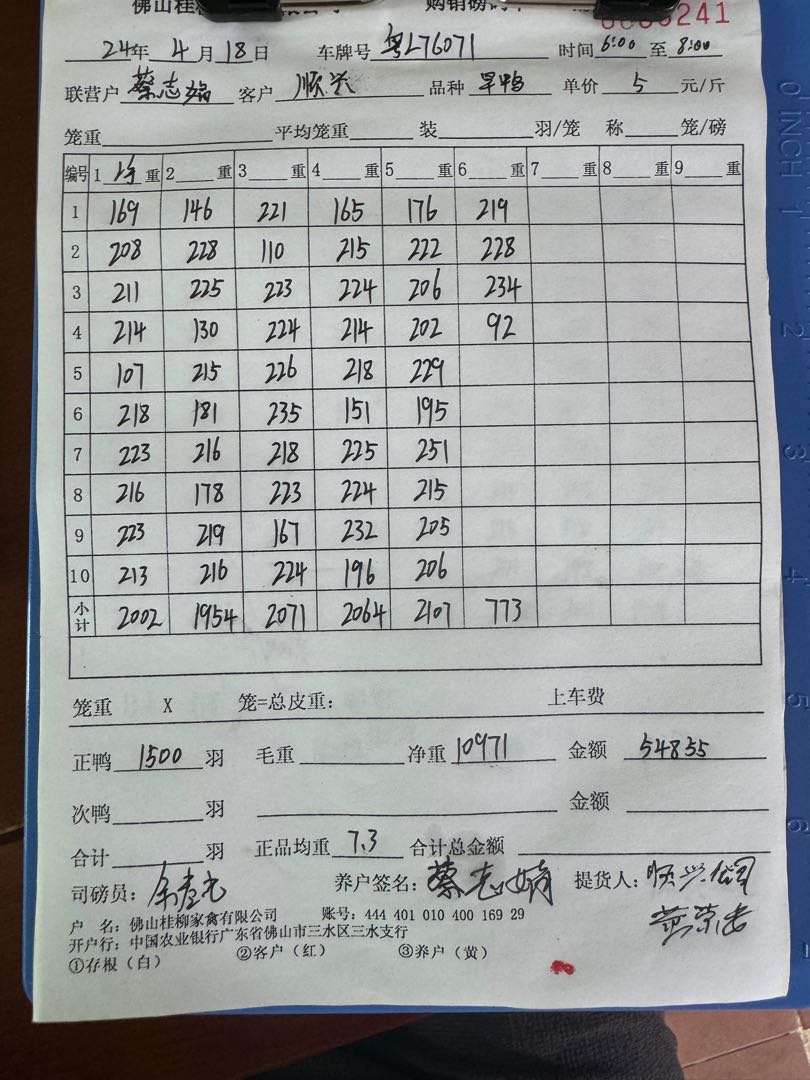 佛山桂 购销磅码单 0000241
24年 4 月 18 日 车牌号 粤L76071 时间 6:00 至 8:00
联营户 蔡志娟 客户 顺兴 品种 旱鸭 单价 5 元/斤
笼重 平均笼重 装 羽/笼 称 笼/磅
编号 1 净 重 2 重 3 重 4 重 5 重 6 重 7 重 8 重 9 重
1 169 146 221 165 176 219
2 208 228 110 215 222 228
3 211 225 223 224 206 234
4 214 130 224 214 202 92
5 107 215 226 218 229
6 218 181 235 151 195
7 223 216 218 225 251
8 216 178 223 224 215
9 223 219 167 232 205
10 213 216 224 196 206
小计 2002 1954 2071 2064 2107 773
笼重 X 笼=总皮重: 上车费
正鸭 1500 羽 毛重 净重 10971 金额 54855
次鸭 羽 金额
合计 羽 正品均重 7.3 合计总金额
司磅员: 养户签名: 蔡志娟 提货人: 顺兴
户 名: 佛山桂柳家禽有限公司 账号: 444 401 010 400 169 29
开户行: 中国农业银行广东省佛山市三水区三水支行
①存根(白) ②客户(红) ③养户(黄)